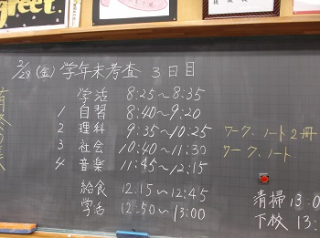 reet
2/28 (金) 学年末考査 3日目
学活 8:25～8:35
1 自習 8:40～9:20
2 理科 9:35～10:25 ワーク、ノート2冊
3 社会 10:40～11:30 ワーク、ノート
4 音楽 11:45～12:15
給食 12:15～12:45
学活 12:50～13:00
清掃 13:0
下校 13: